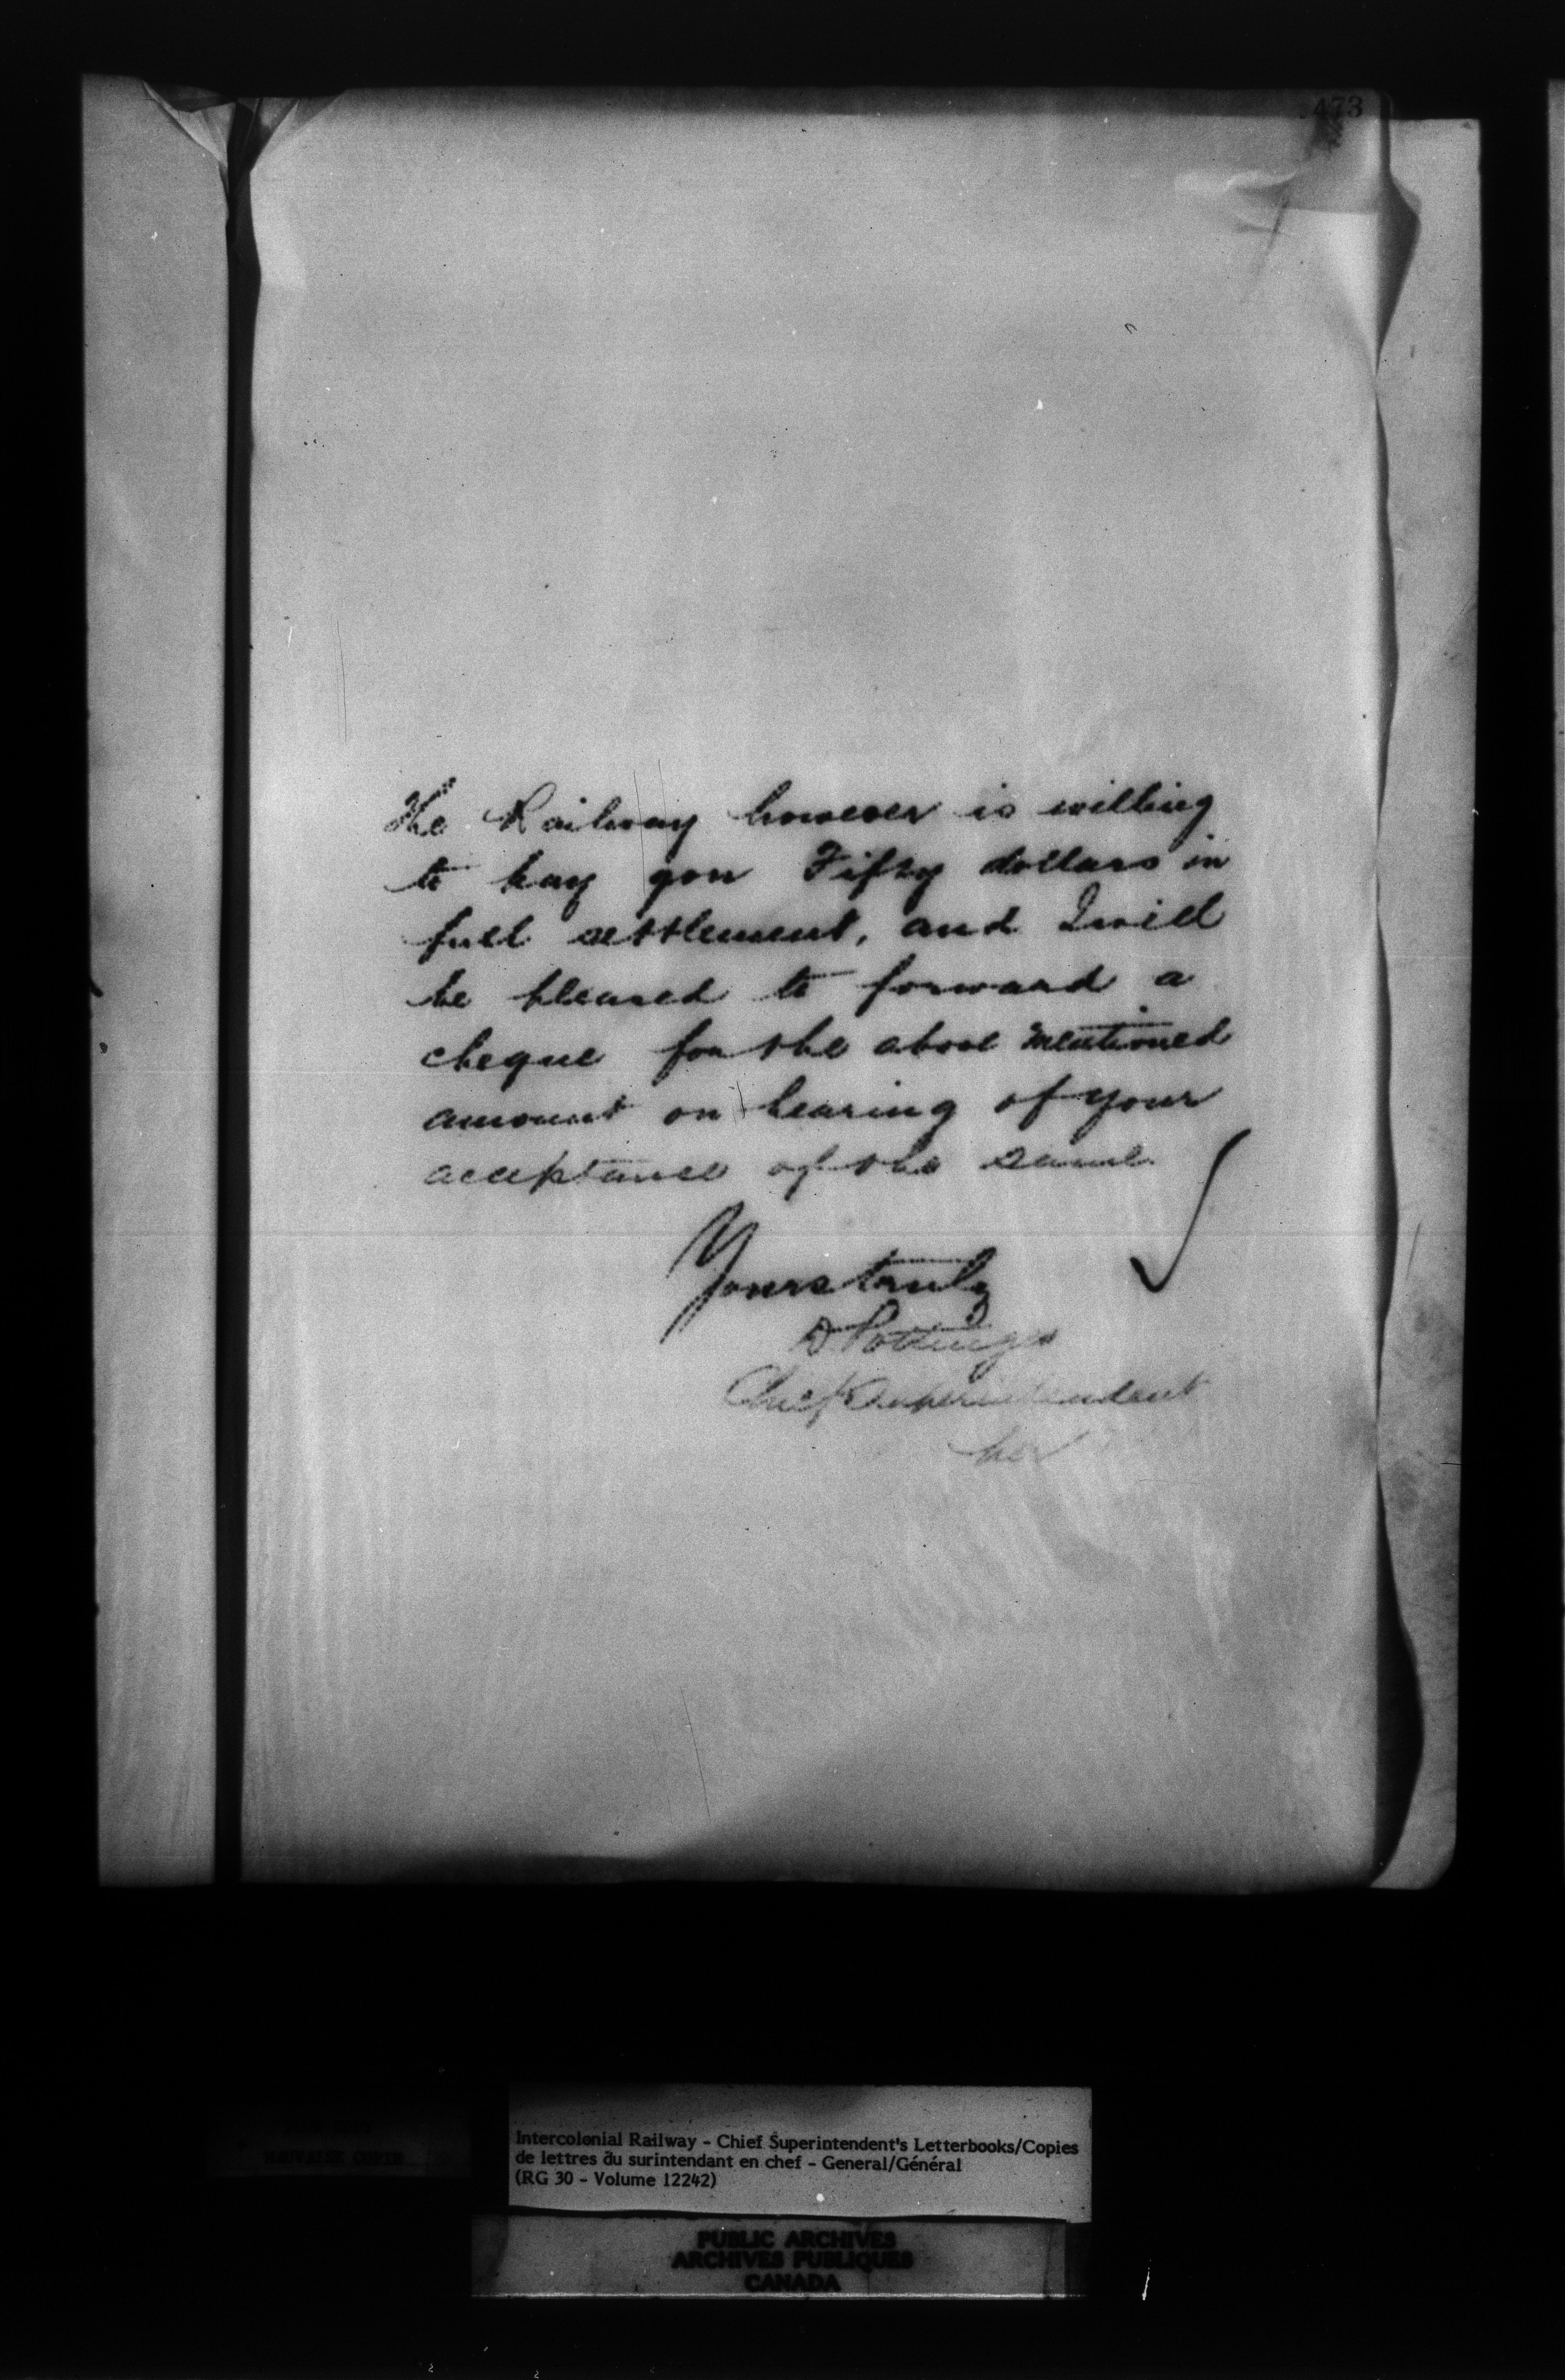 473
The Railway however is willing
to pay you Fifty dollars in
full settlement, and I will
be pleased to forward a
cheque for the above mentioned
amount on hearing of your
acceptance of the same
Yours truly
D Pottinger
Chief Superintendent
Intercolonial Railway - Chief Superintendent's Letterbooks/Copies
de lettres du surintendant en chef - General/Général
(RG 30 - Volume 12242)
PUBLIC ARCHIVES
ARCHIVES PUBLIQUES
CANADA